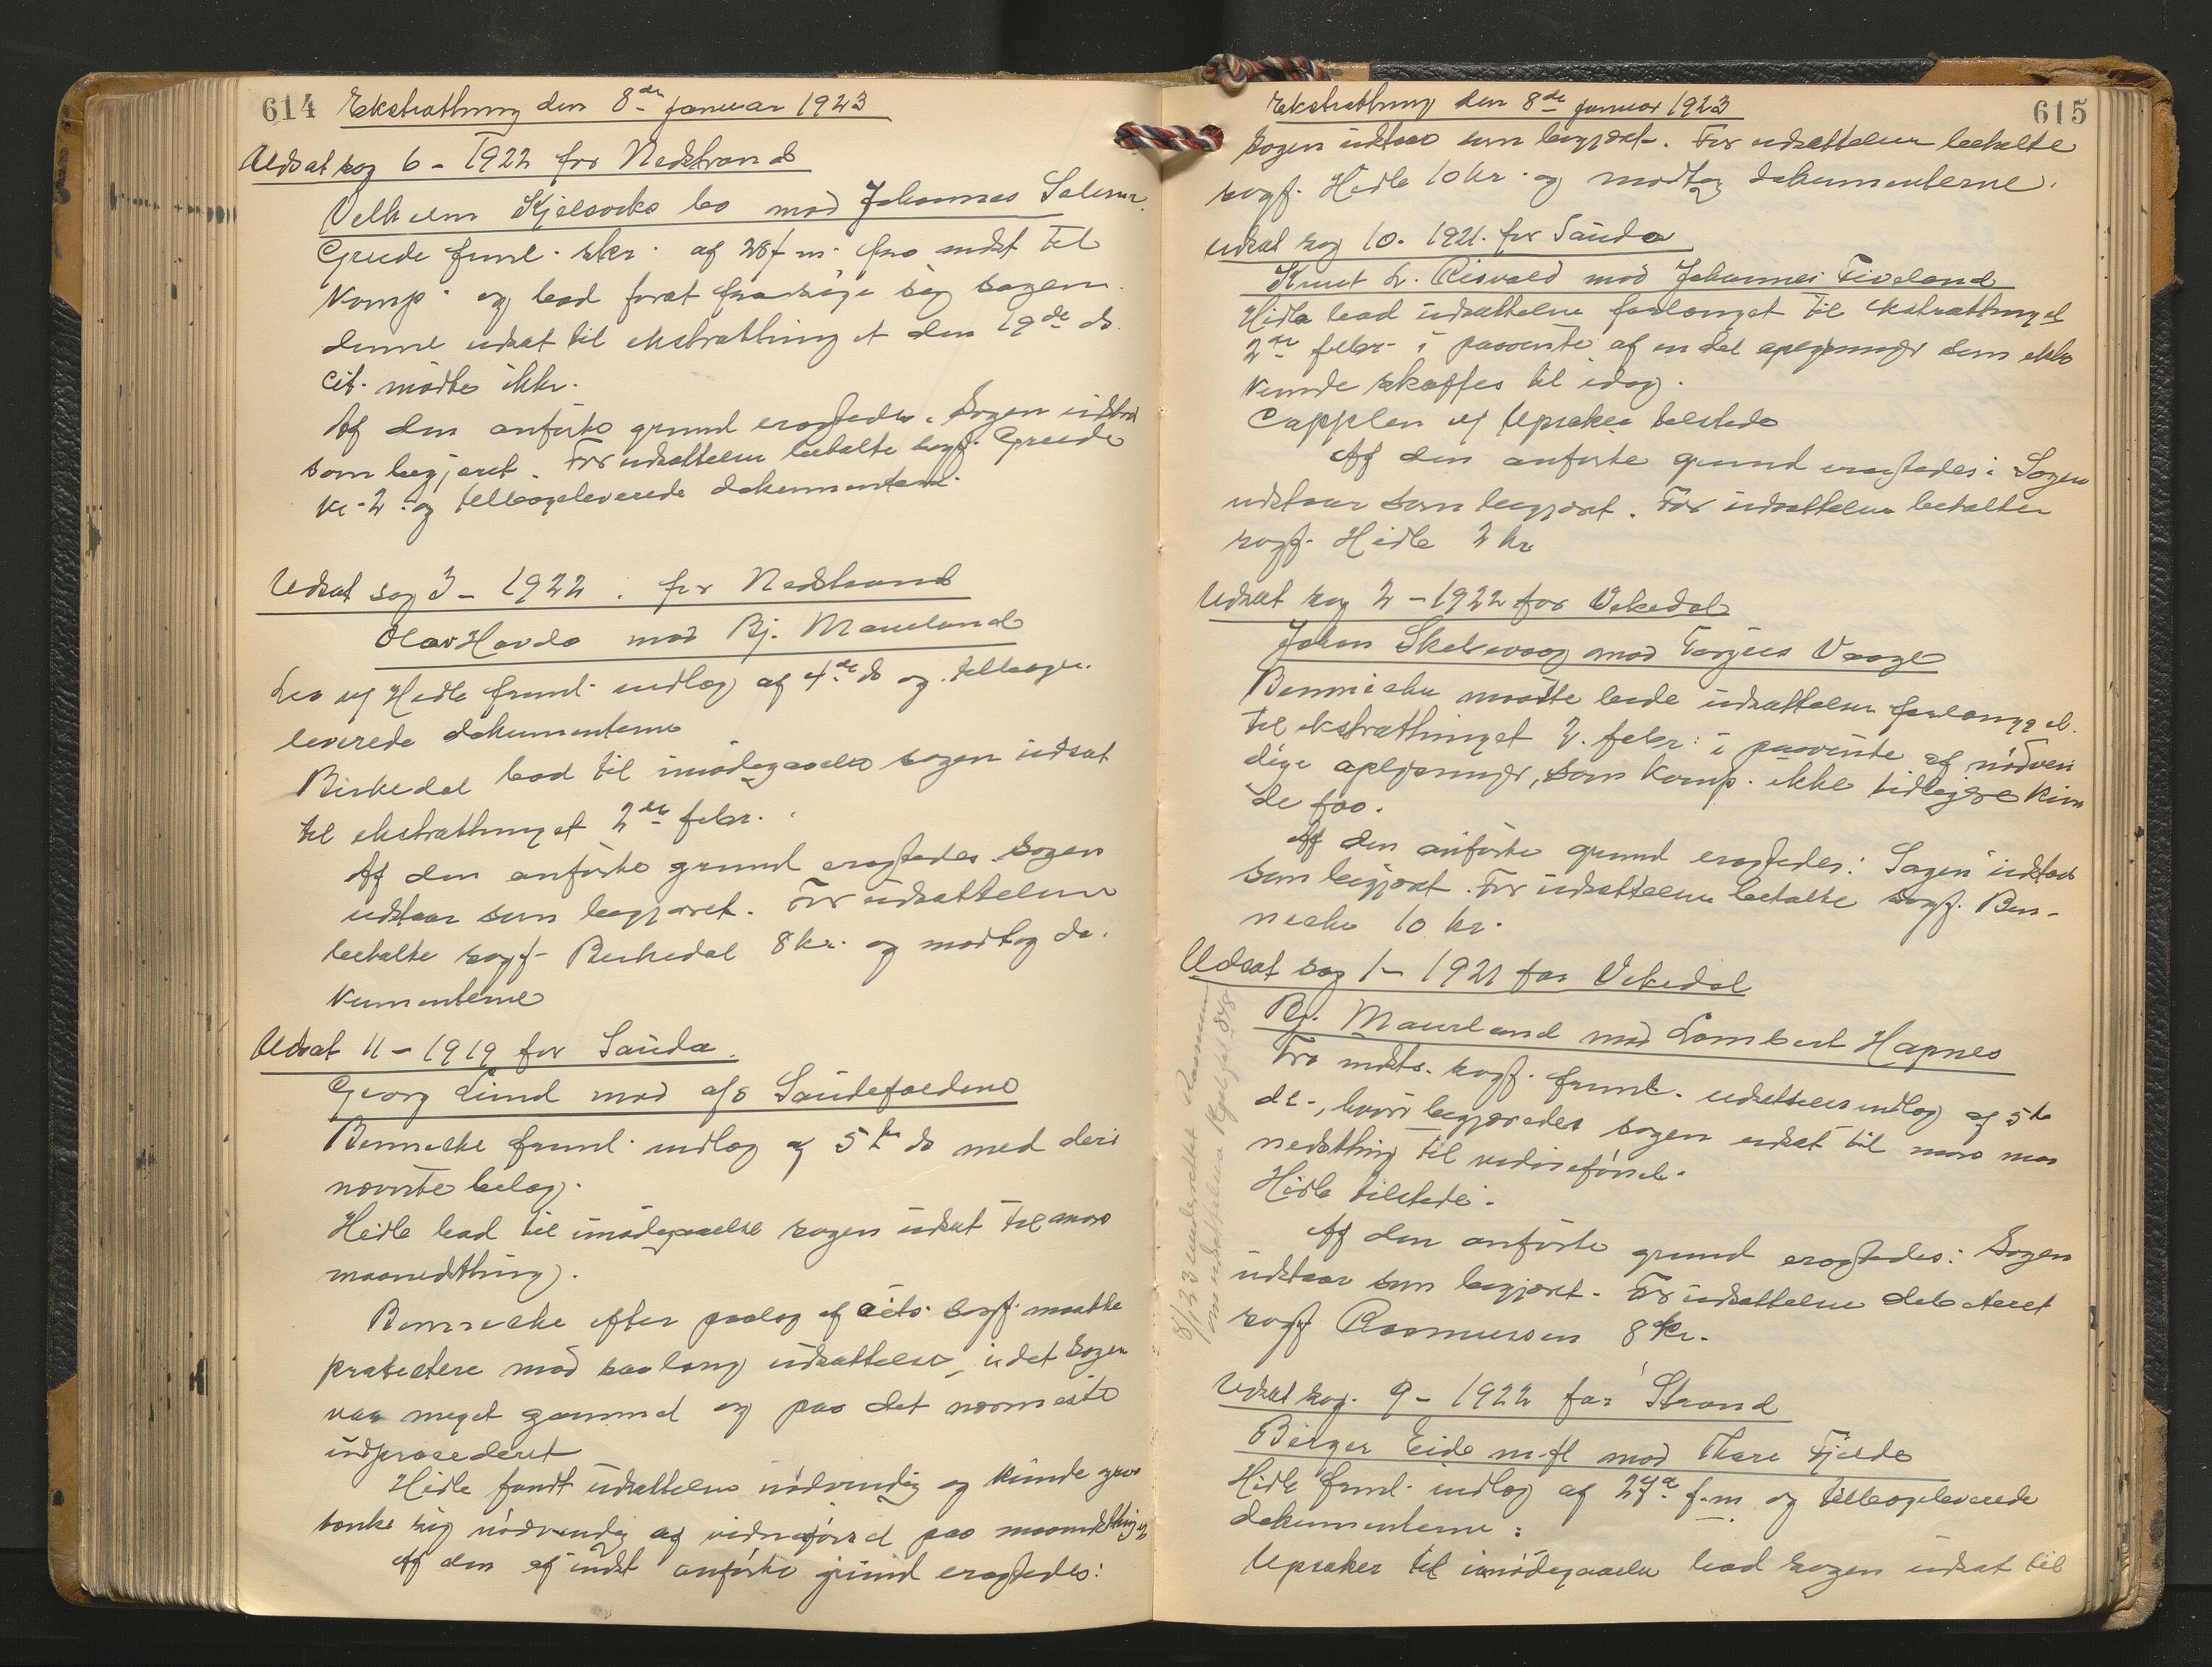 614 Ekstratthing den 8de januar 1923
Udsat sag 6 - 1922 for Nedstrand
Velhelm Kjelsviks bo mod Johannes
Greide freml. skr. af 28 f.m. fra mdst til
komp. og bad forat frasige sig sagen
denne udsat til ekstratthinget den 19de ds.
Cit. mødte ikke.
Af den anførte grund eragtedes: Sagen udstaar
som begjæret. For udsættelsen betalte sagf. Greide
kr. 2 og tilbageleverede dokumenterne.
Udsat sag 3 - 1922 . for Nedstrand
Olav Havda mod Bj. Maurland
Lea v/ Hidle freml. indlæg af 4de ds og tilbage-
leverede dokumenterne
Birkedal bad til imødegaaelse sagen udsat
til ekstratthinget 2den febr.
Af den anførte grund eragtedes Sagen
udstaar som begjæret. For udsættelsen
betalte sagf. Birkedal 8 kr. og modtog do-
kumenterne
Udsat 11 - 1919 for Sauda.
Georg Lund mod a/s Saudefaldene
Bennecke freml. indlæg af 5te ds med deri
nævnte belæg.
Hidle bad til imødegaaelse sagen udsat til mars
maanedsthing.
Bennecke efter paalæg af cits. sagf. maatte
protestere mod saa lang udsættelse, idet sagen
var meget gammel og paa det nærmeste
udprocederet
Hidle fandt udsættelsen nødvendig og kunde
tænke sig nødvendig af vidneførsel paa maanedsthinget
Af den af indst anførte grund eragtedes:
Ekstratthing den 8de januar 1923 615
Sagen udstaar som begjæret. For udsættelsen betalte
sagf. Hidle 10 kr. og modtog dokumenterne.
Udsat sag 10. 1921. for Sauda
Knut L. Risvold mod Johannes Fiveland
Hidle bad udsættelsen forlænget til ekstratthinget
2den febr. i paavente af en del oplysninger som ikke
kunde skaffes til idag.
Cappelen v/ Upsaker tilstede
Af den anførte grund eragtedes: Sagen
udstaar som begjæret. For udsættelsen betalter
sagf. Hidle 2 kr
Udsat sag 2 - 1922 for Vikedal
Johan Skeievaag mod Torjus Vaage
Bennecke maatte bede udsættelsen forlænget
til ekstratthinget 2. febr. i paavente af nødven
dige oplysninger, som komp. ikke tidligere kun
de faa.
Af den anførte grund eragtedes: Sagen udstaar
som begjæret. For udsættelsen betalte sagf. Ben-
necke 10 kr.
Udsat sag 1 - 1921 for Vikedal
Bj. Maurland mod Lambert Hapnes
Fra mdts. sagf. freml. udsættelsesindlæg af 5te
ds., hvori begjæredes sagen udsat til mars maa
nedsthing til vidneførsel.
Hidle tilstede.
Af den anførte grund eragtedes: Sagen
udstaar som begjæret. For udsættelsen debiteret
sagf Rasmussen 8 kr.
8/1 23 underrettet Rasmussen
om udsættelsen
Udsat sag. 9 - 1922 for Strand
Birger Eide m.fl mod Thore Fjelde
Hidle freml. indlæg af 27de f.m og tilbageleverede
dokumenterne:
Upsaker til imødegaaelse bad sagen udsat til